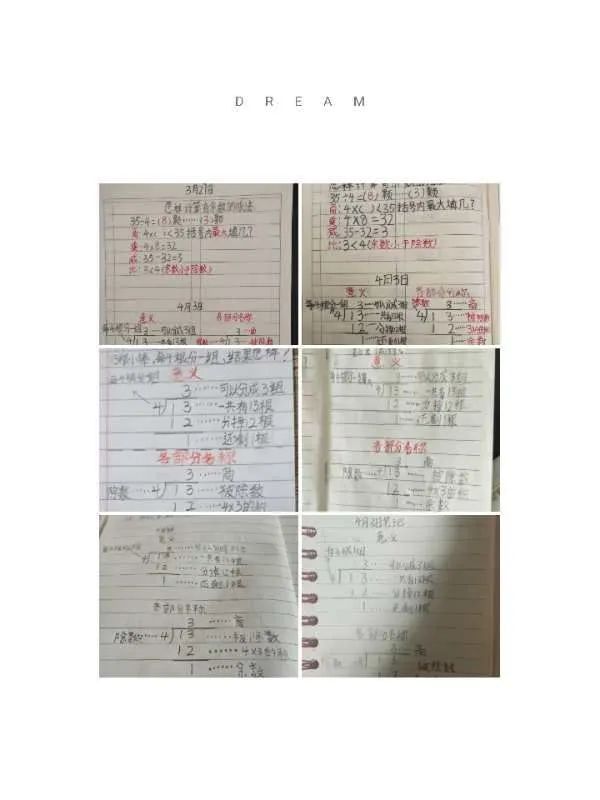 DREAM
3月21日
怎样计算有余数的除法
35÷4=(8)颗……(3)颗
商:4×( )<35括号内最大填几?
乘:4×8=32
减:35-32=3
比:3<4(余数小于除数)
4月3日
意义 各部分名称
每4根分一组 3……可以分成3组 3……商
4 13……一共有13根 4 13……被除数
35÷4=(8)颗……(3)颗
商:4×( )<35括号内最大填几?
乘:4×8=32
减:35-32=3
比:3<4(余数小于除数)
4月3日
意义 各部分名称
每4根分一组 3……可以分成3组 除数 3……商
4 13……一共有13根 4 13……被除数
12……分掉12根 12……
1……还剩1根 1……余数
13根小棒,每4根分一组,结果怎样?
每4根分一组 意义
3……可以分成3组
4 13……一共有13根
12……分掉12根
1……还剩1根
各部分名称
3……商
除数……4 13……被除数
12……4×3的积
意义
每4根分一组
4 13……一共有13根
12……分掉12根
1……还剩1根
各部分名称
3……商
除数……4 13……被除数
12……4×3的积
1……余数
意义
4 13……一共有13根
12……分掉12根
1……还剩1根
各部分名称
3……商
除数……4 13……被除数
12……4×3的积
1……余数
4月3日笔记
意义
每4根分一组
3……可以分成3组
4 13……一共有13根
12……分掉12根
1……还剩1根
各部分名称
3……商
除数……4 13……被除数